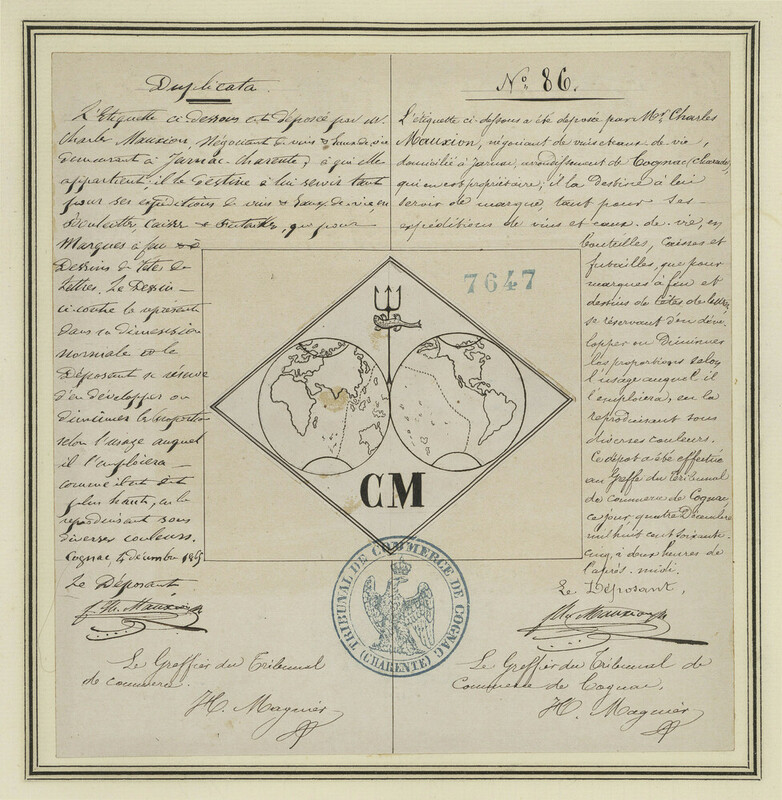 Duplicata.
L'Etiquette ci-dessous est déposée par Mr.
Charles Mauxion, Négociant de vins & Eaux de vie
demeurant à Jarnac-Charente, à qui elle
appartient; il la destine à lui servir tant
pour ses expéditions de vins & Eaux de vie, en
Bouteilles, Caisses & futailles, que pour
Marques à feu & à
Dessins de têtes de
Lettres. Le Dessin
ci-contre la représente
dans sa dimension
normale et le
Déposant se réserve
d'en développer ou
diminuer les proportions
selon l'usage auquel
il l'emploiera
comme il est dit
plus haut, en le
reproduisant sous
diverses couleurs.
Cognac, 4 décembre 1865
Le Déposant
Ch. Mauxion
Le Greffier du Tribunal
de commerce.
H. Magnier
No. 86.
L'étiquette ci-dessous a été déposée par Mr. Charles
Mauxion, négociant de vins et eaux-de-vie,
domicilié à Jarnac, arrondissement de Cognac (Charente),
qui en est propriétaire; il la destine à lui
servir de marque, tant pour ses
expéditions de vins et eaux-de-vie, en
bouteilles, Caisses et
futailles, que pour
marques à feu et
dessins de têtes de lettres,
se réservant d'en déve-
lopper ou Diminuer
les proportions selon
l'usage auquel il
l'emploiera, en la
reproduisant sous
diverses couleurs.
Ce dépôt a été effectué
au Greffe du Tribunal
de commerce de Cognac
ce jour quatre Décembre
mil huit cent soixante-
cinq, à deux heures de
l'après-midi.
Le Déposant,
Ch. Mauxion
Le Greffier du Tribunal de
Commerce de Cognac,
H. Magnier
7647
CM
TRIBUNAL DE COMMERCE DE COGNAC
(CHARENTE)